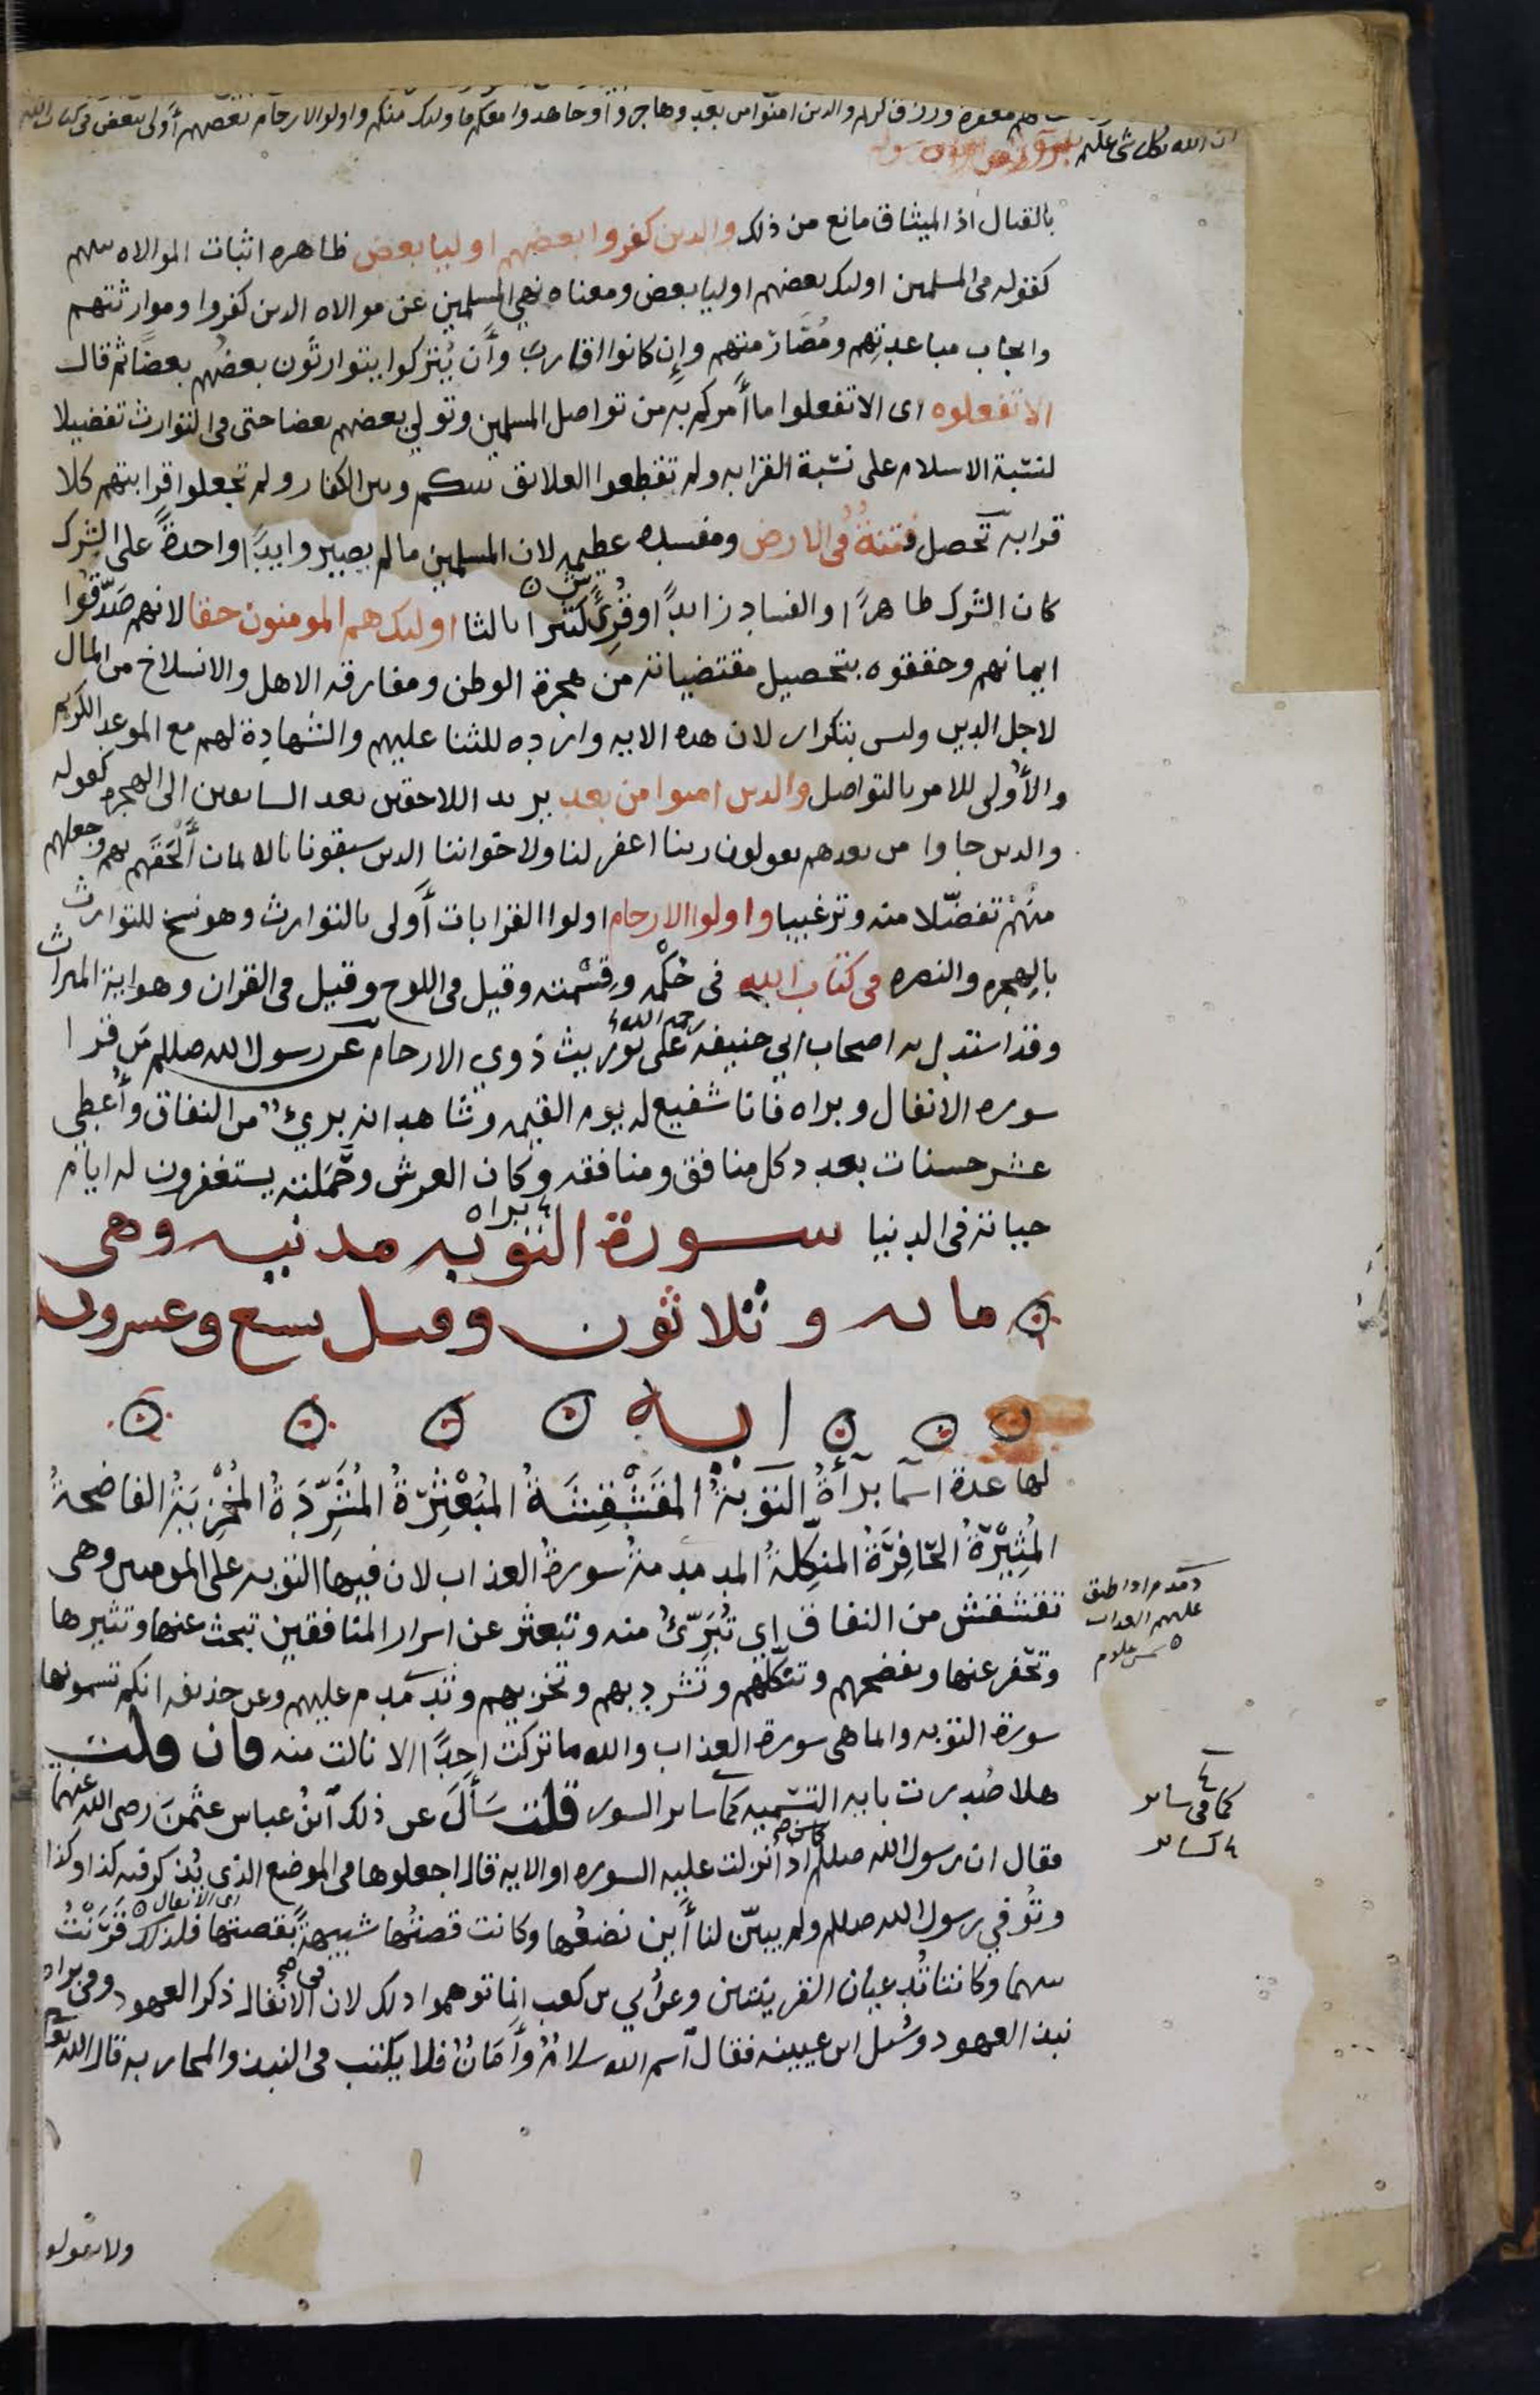 مغفرة ورزق كريم والدين امنوا من بعد وهاجروا وجاهدوا معكم فاوليك منكم واولوا الارحام بعضهم أولى ببعض فى كتاب الله
ان الله بكل شى عليم
بالقتال اذ الميثاق مانع من ذلك والدين كفروا بعضهم اوليا بعض ظاهره اثبات الموالاه بينهم
كقوله فى المسلمين اوليك بعضهم اوليا بعض ومعناه نهي المسلمين عن موالاه الدين كفروا وموارثتهم
وايجاب مباعدتهم ومصارمتهم وإن كانوا اقارب وأن يُتركوا يتوارثون بعضُهم بعضًا ثم قال
الا تفعلوه اى الا تفعلوا ما أمركم به من تواصل المسلمين وتولي بعضهم بعضا حتى فى التوارث تفضيلا
لنسبة الاسلام على نسبة القرابه ولم تقطعوا العلايق بينكم وبين الكفار ولم تجعلوا قرابتهم كلا
قرابه تحصل فتنةٌ فى الارض ومفسده عظيمه لان المسلمين مالم يصيروا يدًا واحدةً على الشرك
كان الشرك ظاهرًا والفساد زايدًا وقُرِئَ كثيرا بالثا اوليك هم المومنون حقا لانهم صَدّقوا
ايمانهم وحققوه بتحصيل مقتضياته من هجرة الوطن ومفارقه الاهل والانسلاخ من المال
لاجل الدين وليس بتكرار لان هده الايه وارده للثنا عليهم والشهادة لهم مع الموعد الكريم
والأولى للامر بالتواصل والدين امنوا من بعد يريد اللاحقين بعد السابقين الى الهجره كقوله
والدين جاوا من بعدهم يقولون ربنا اغفر لنا ولاخواننا الدين سبقونا بالايمان أَلْحَقَهم بهم وجعلهم
منهم تفضّلا منه وترغيبا واولوا الارحام اولوا القرابات أولى بالتوارث وهو نسخ للتوارث
بالهجره والنصره فى كتاب الله فى حُكْمه وقِسْمته وقيل فى اللوح وقيل فى القران وهو اية الميراث
وقد استدل به اصحاب ابي حنيفه رحمه الله على توريث ذوي الارحام عن رسول الله صللم مَن قرا
سوره الانفال وبراه فانا شفيع له يوم القيمه وشاهد انه بريءٌ من النفاق وأُعطي
عشر حسنات بعدد كل منافق ومنافقه وكان العرش وحَمَلته يستغفرون له ايام
حياته فى الدنيا سورة التوبه براه مدنيه وهى
مايه وثلاثون وقيل تسع وعشرون
ايه
لها عدة اسما برآءةُ التَوبةُ المقَشْقِشَةُ المُبَعْثِرَةُ المُشَرِّدَةُ المُخْزِيَةُ الفاضحةُ
المُثِيرَةُ الحَافِرَةُ المنكِّلةُ المدمدمةُ سورةُ العذاب لان فيها التوبه على المومنين وهى
تقشقش من النفاق اي تُبَرِّئُ منه وتبعثر عن اسرار المنافقين تبحث عنها وتثيرها
وتحفر عنها وتفضحهم وتنكّلهم وتشرد بهم وتخزيهم وتدمدم عليهم وعن حذيفه انكم تسمونها
سورة التوبه وانما هى سورة العذاب والله ما تركت احدًا الا نالت منه فان قلت
هلا صُدرت بايه التسميه كما ساير السور قلت سَأَلَ عن ذلك ابنُ عباس عثمنَ رضى الله عنهما
فقال ان رسول الله صللم كان اذا أنزلت عليه السوره او الايه قال اجعلوها فى الموضع الذى يُذكر فيه كذا وكذا
وتُوفي رسول الله صللم ولم يبيّن لنا أين نضعُها وكانت قصتُها شبيهةً بقصتها اى الانفال فلذلك قُرنتْ
بينهما وكانتا تُدعيان القرينتين وعن أُبي بن كعب انما توهموا ذلك لان فى الانفال ذكر العهود وفى براه
نبذ العهود وسُئل ابن عيينه فقال اسم الله سلامٌ وأَمَانٌ فلا يكتب فى النبذ والمحاربه قال الله تعَ
دمدم ادا اطبق
عليهم العداب
شمس علوم
كما فى ساير
كساير
ولا تقولو